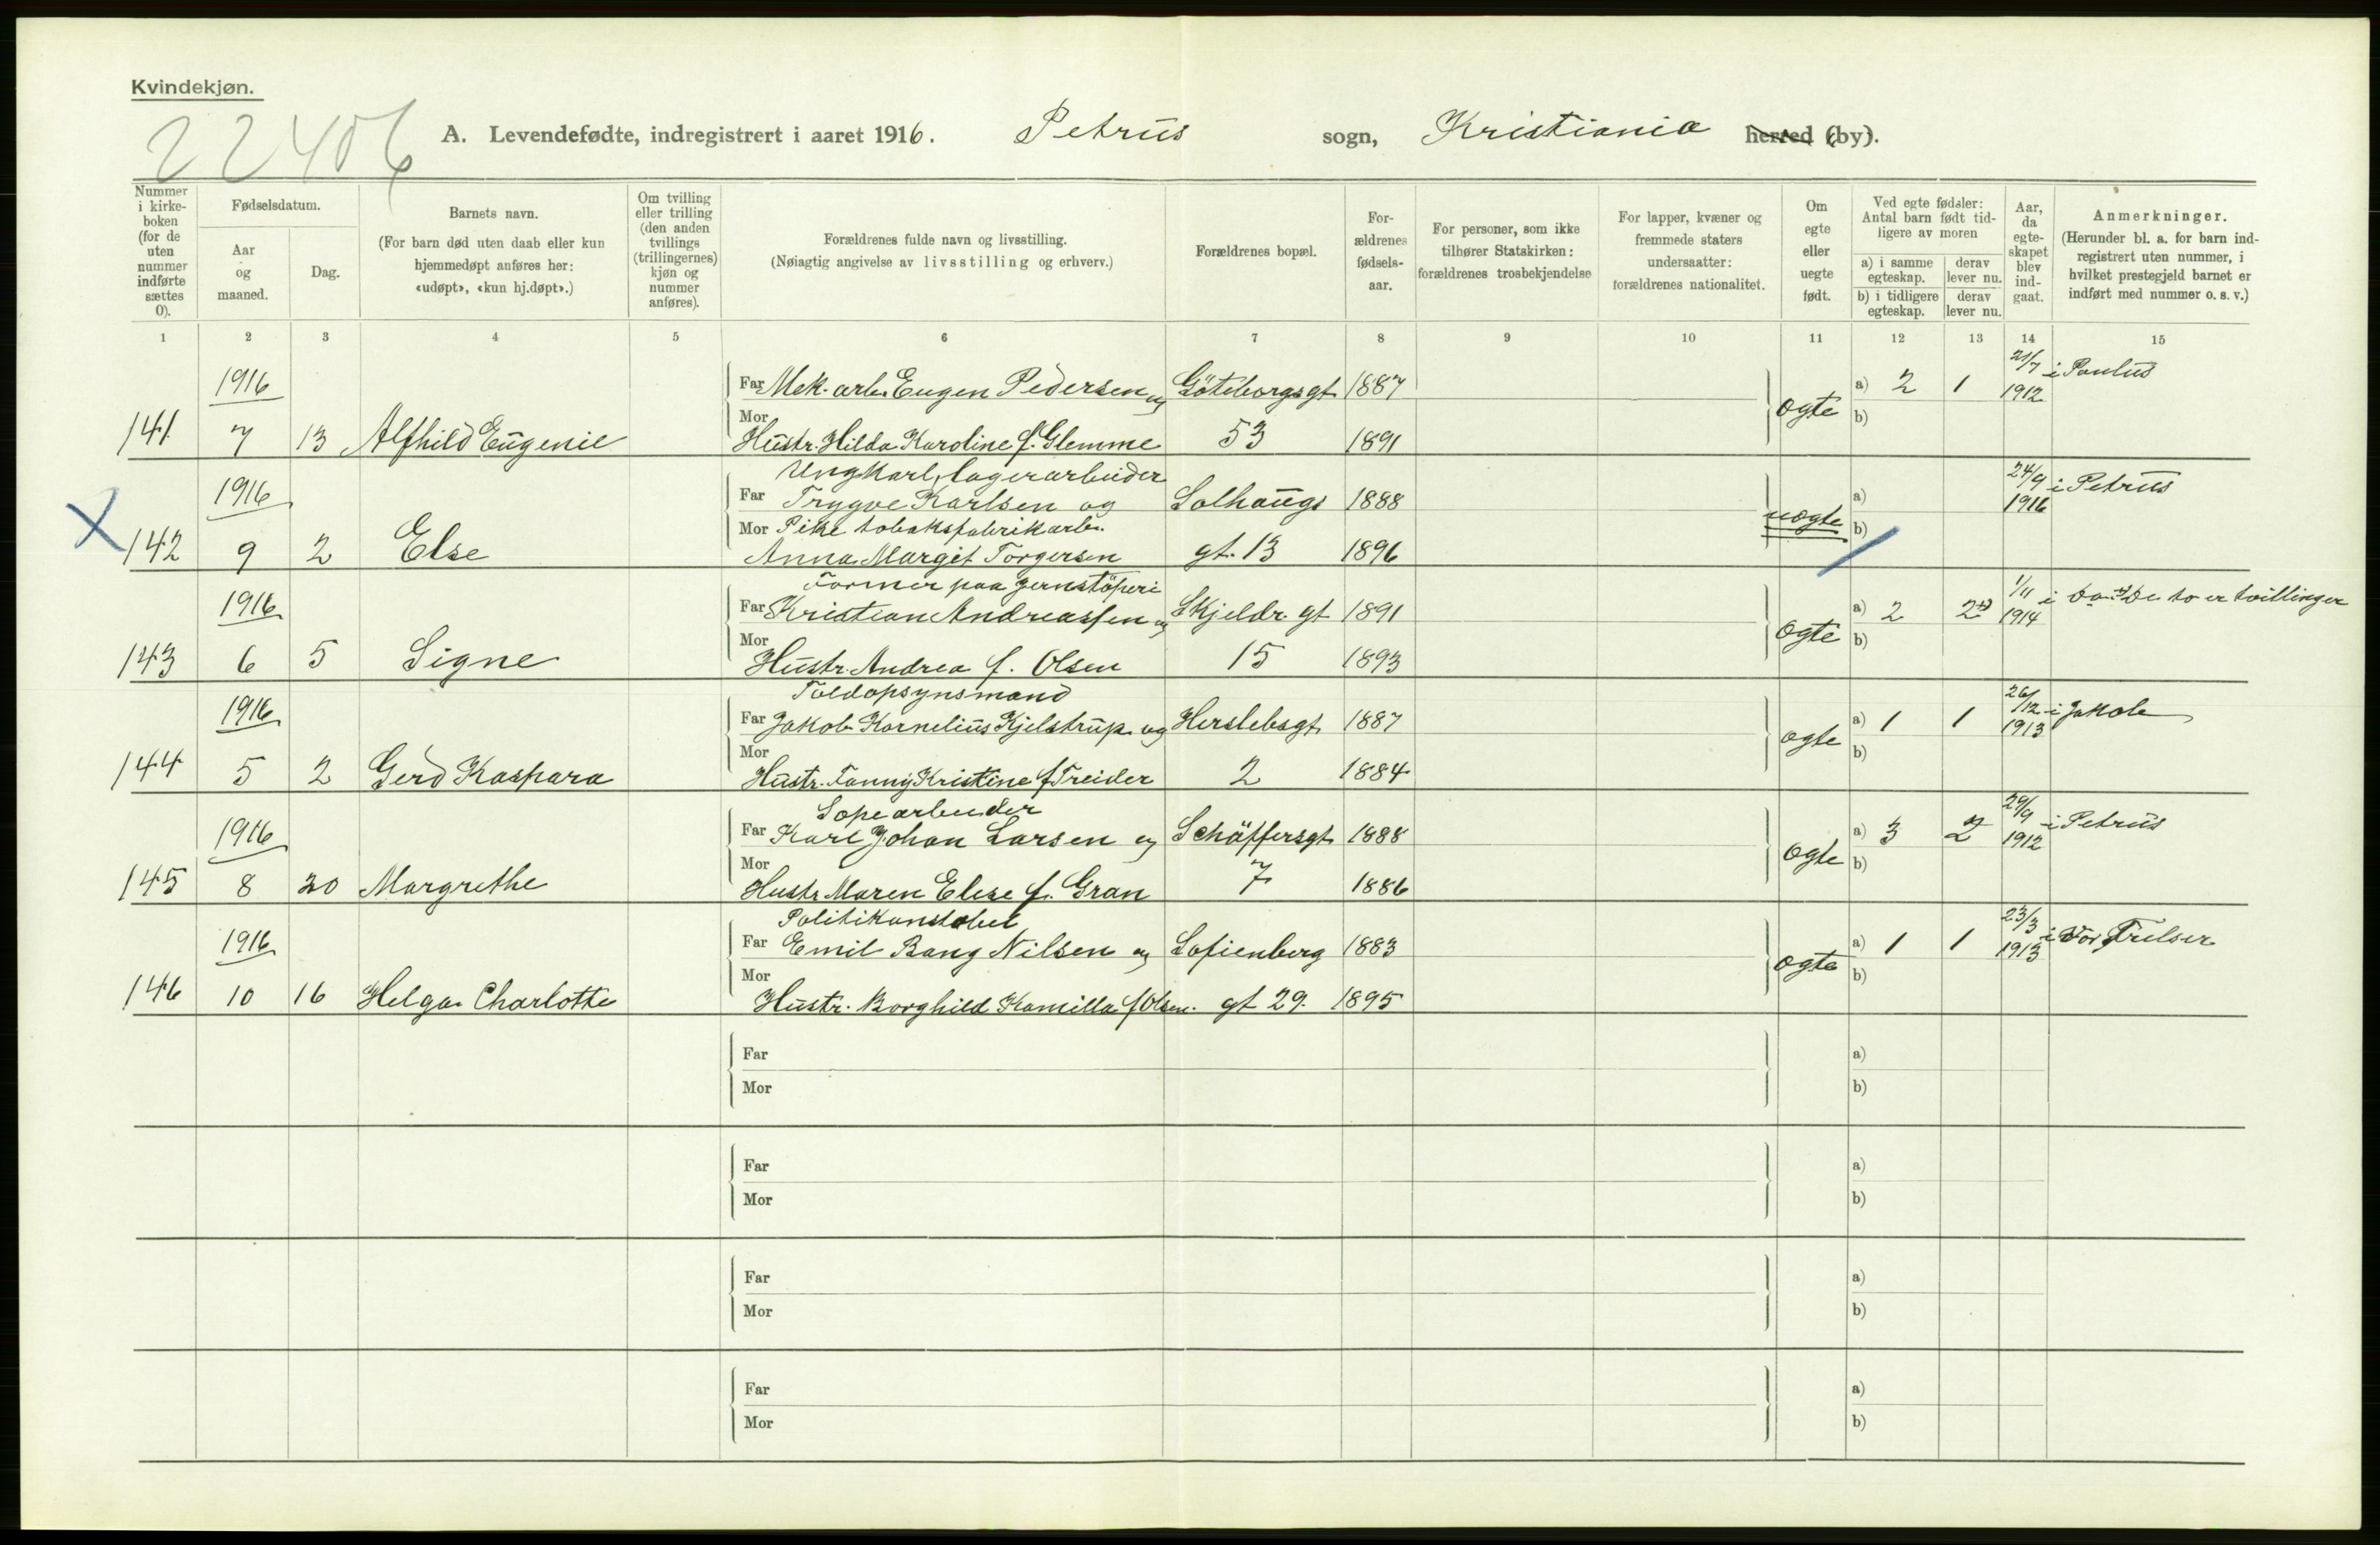 Kvindekjøn.
22406
A. Levendefødte, indregistrert i aaret 1916. Petrus sogn, Kristiania herred (by).
Nummer i kirkeboken (for de uten nummer indførte sættes 0).
Fødselsdatum.
Aar og maaned.
Dag.
Barnets navn.
(For barn død uten daab eller kun hjemmedøpt anføres her: «udøpt», «kun hj.døpt».)
Om tvilling eller trilling (den anden tvillings (trillingernes) kjøn og nummer anføres).
Forældrenes fulde navn og livsstilling.
(Nøiagtig angivelse av livsstilling og erhverv.)
Forældrenes bopæl.
Forældrenes fødselsaar.
For personer, som ikke tilhører Statskirken: forældrenes trosbekjendelse
For lapper, kvæner og fremmede staters undersaatter: forældrenes nationalitet.
Om egte eller uegte født.
Ved egte fødsler: Antal barn født tidligere av moren
a) i samme egteskap. derav lever nu.
b) i tidligere egteskap. derav lever nu.
Aar, da egteskapet blev indgaat.
Anmerkninger.
(Herunder bl. a. for barn indregistrert uten nummer, i hvilket prestegjeld barnet er indført med nummer o. s. v.)
1 2 3 4 5 6 7 8 9 10 11 12 13 14 15
1916 Far Mek. arb. Eugen Pedersen og Göteborgsgt. 1887 a) 2 1 21/7 1912 i Paulus
141 7 13 Alfhild Eugenie Mor Hustr. Hilda Karoline f. Glemme 53 1891 ogte b)
Ungkarl, lagerarbeider
1916 Far Trygve Karlsen og Solhaugs 1888 a) 24/9 1916 i Petrus
Mor Pike tobaksfabrikarb.
X 142 9 2 Else Anna Margit Torgersen gt. 13 1896 uogte b)
Former paa jernstöperi
1916 Far Kristian Andreassen og Skjeldr. gt 1891 a) 2 2 1/11 1914 i De to er tvillinger
143 6 5 Signe Mor Hustr. Andrea f. Olsen 15 1893 ogte b)
Toldopsynsmand
1916 Far Jakob Kornelius Kjelstrup og Herslebsgt. 1887 a) 1 1 26/12 1913 i Jakob
144 5 2 Gerd Kaspara Mor Hustr. Fanny Kristine f. Treider 2 1884 ogte b)
Sopearbeider
1916 Far Karl Johan Larsen og Schäffersgt. 1888 a) 3 2 29/9 1912 i Petrus
145 8 20 Margrethe Mor Hustr. Maren Elise f. Gran 7 1886 ogte b)
Politikonstabel
1916 Far Emil Bang Nilsen og Sofienberg 1883 a) 1 1 23/3 1913 i Vor Frelser
146 10 16 Helga Charlotte Mor Hustr. Borghild Kamilla f. Olsen. gt 29. 1895 ogte b)
Far a)
Mor b)
Far a)
Mor b)
Far a)
Mor b)
Far a)
Mor b)